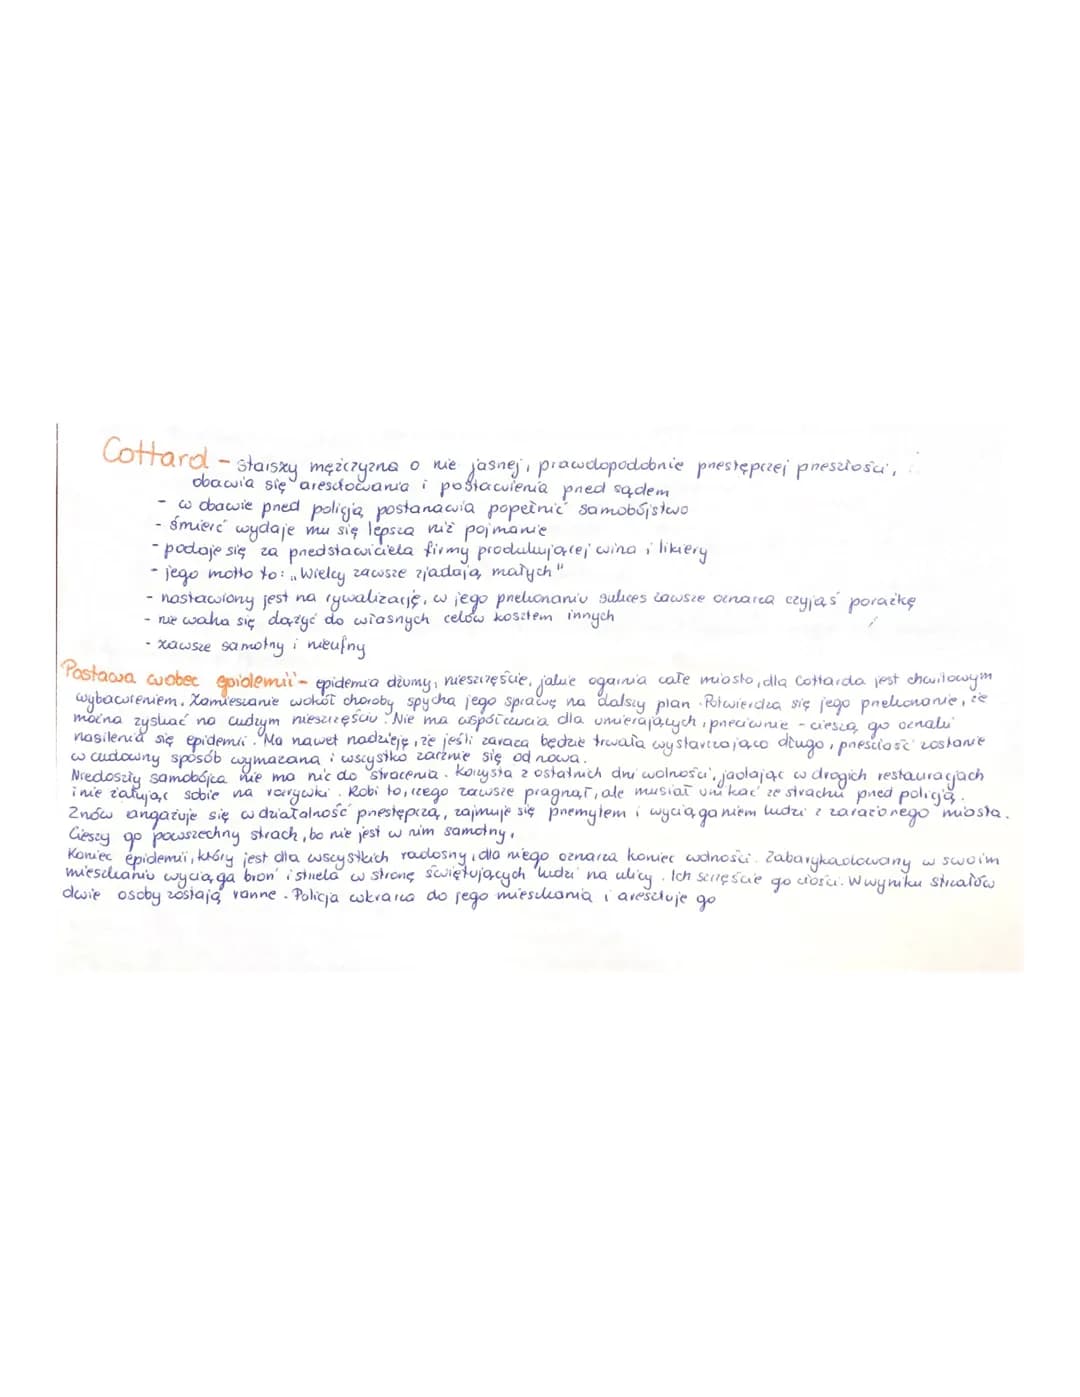 Cottard - starszy mężczyzna o nie jasnej, prawdopodobnie przestępczej przeszłości,
obawia się aresztowania i postawienia przed sądem
- w obawie przed policją postanawia popełnić samobójstwo
- śmierć wydaje mu się lepsza niż pojmanie
- podaje się za przedstawiciela firmy produkującej wina i likiery
- jego motto to: „Wielcy zawsze zjadają małych"
- nastawiony jest na rywalizację, w jego przekonaniu sukces zawsze oznacza czyjąś porażkę
- nie waha się dążyć do własnych celów kosztem innych
- zawsze samotny i nieufny
Postawa wobec epidemii - epidemia dżumy, nieszczęście, jakie ogarnia całe miasto, dla Cottarda jest chwilowym
wybawieniem. Zamieszanie wokół choroby spycha jego sprawę na dalszy plan. Potwierdza się jego przekonanie, że
można zyskać na cudzym nieszczęściu. Nie ma współczucia dla umierających, przeciwnie - cieszą go oznaki
nasilenia się epidemii. Ma nawet nadzieję, że jeśli zaraza będzie trwała wystarczająco długo, przeszłość zostanie
w cudowny sposób wymazana i wszystko zacznie się od nowa.
Niedoszły samobójca nie ma nic do stracenia. Korzysta z ostatnich dni wolności, jadając w drogich restauracjach
i nie żałując sobie na rozrywki. Robi to, czego zawsze pragnął, ale musiał unikać ze strachu przed policją.
Znów angażuje się w działalność przestępczą, zajmuje się przemytem i wyciąganiem ludzi z zarażonego miasta.
Cieszy go powszechny strach, bo nie jest w nim samotny.
Koniec epidemii, który jest dla wszystkich radosny, dla niego oznacza koniec wolności. Zabarykadowany w swoim
mieszkaniu wyciąga broń i strzela w stronę świętujących ludzi na ulicy. Ich szczęście go złości. W wyniku strzałów
dwie osoby zostają ranne. Policja wkracza do jego mieszkania i aresztuje go